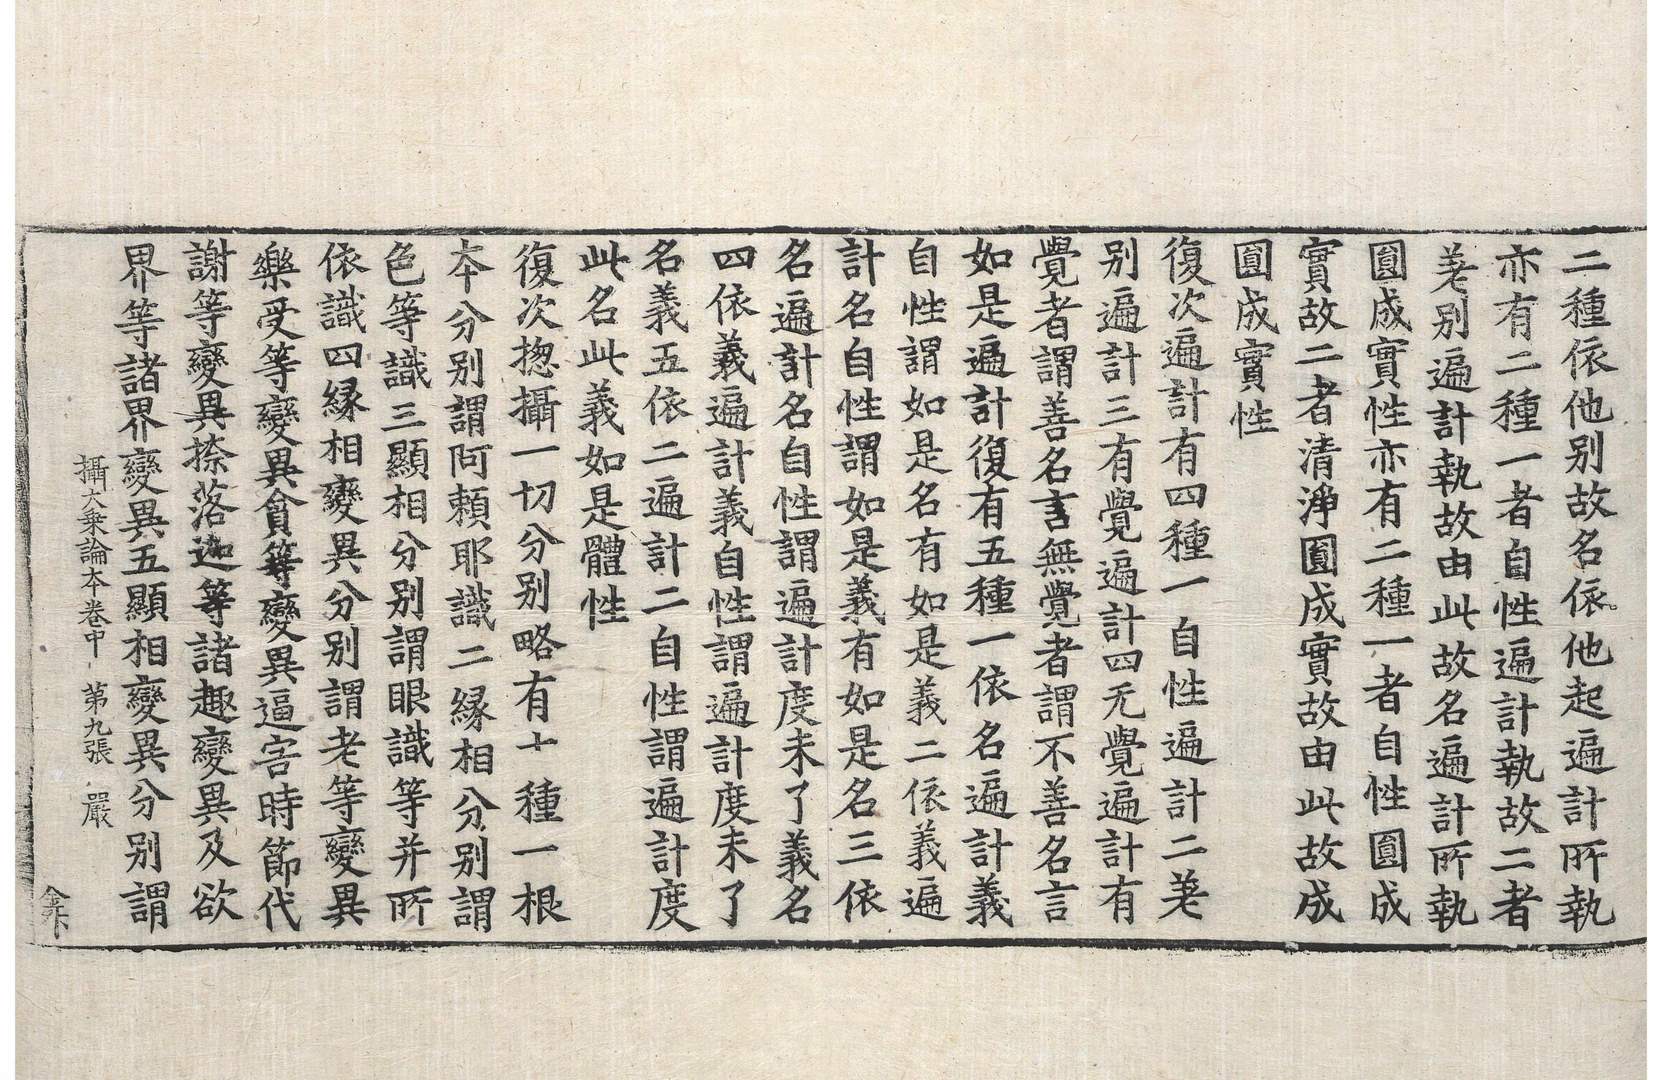 二種依他别故名依他起遍計所執
亦有二種一者自性遍計執故二者
差别遍計執故由此故名遍計所執
圓成實性亦有二種一者自性圓成
實故二者清淨圓成實故由此故成
圓成實性
復次遍計有四種一自性遍計二差
别遍計三有覺遍計四无覺遍計有
覺者謂善名言無覺者謂不善名言
如是遍計復有五種一依名遍計義
自性謂如是名有如是義二依義遍
計名自性謂如是義有如是名三依
名遍計名自性謂遍計度未了義名
四依義遍計義自性謂遍計度未了
名義五依二遍計二自性謂遍計度
此名此義如是體性
復次揔攝一切分别略有十種一根
本分别謂阿賴耶識二縁相分别謂
色等識三顯相分别謂眼識等并所
依識四縁相變異分别謂老等變異
樂受等變異貪等變異逼害時節代
謝等變異捺落迦等諸趣變異及欲
界等諸界變異五顯相變異分别謂
攝大乗論本卷中 第九張 嚴